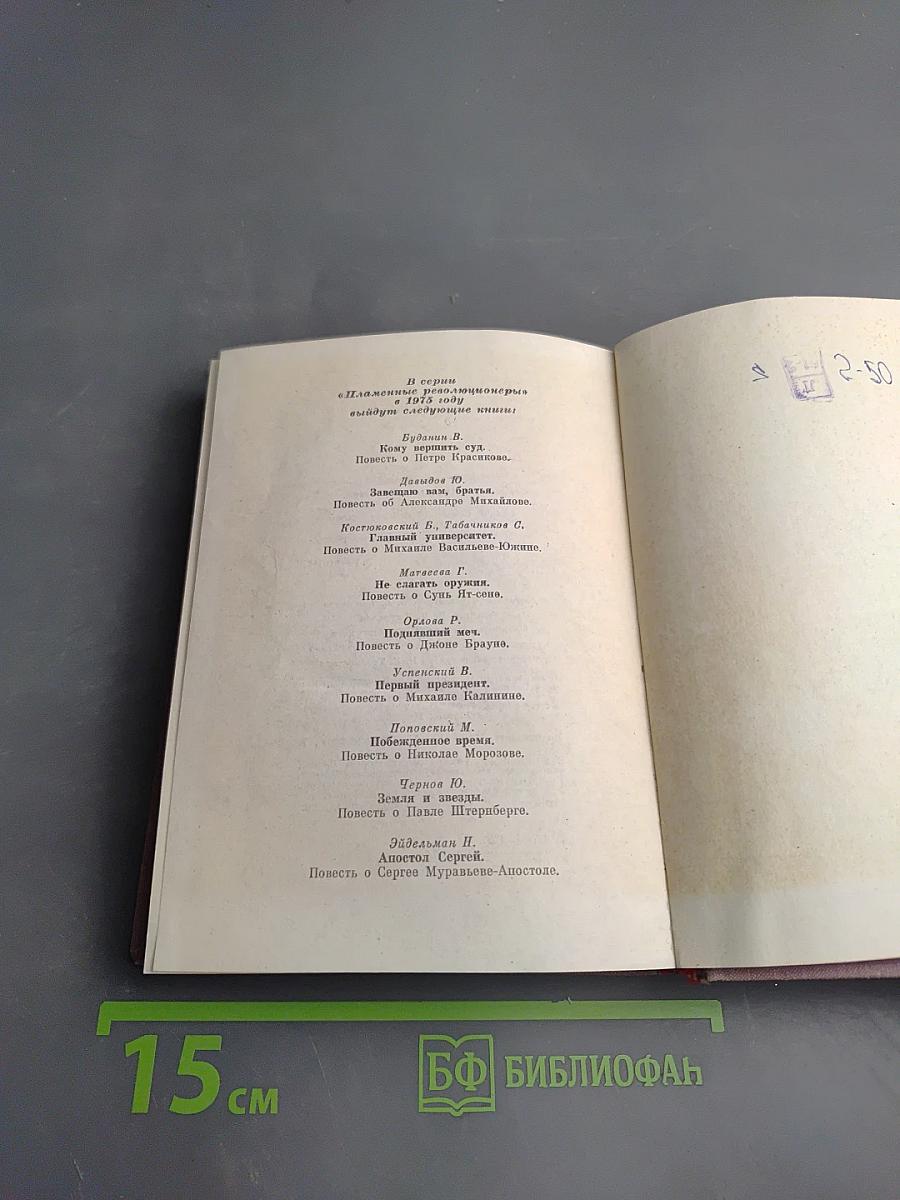 В серии
«Пламенные революционеры»
в 1975 году
выйдут следующие книги:
Буданин В.
Кому вершить суд.
Повесть о Петре Красикове.
Давыдов Ю.
Завещаю вам, братья.
Повесть об Александре Михайлове.
Костюковский Б., Табачников С.
Главный университет.
Повесть о Михаиле Васильеве-Южине.
Матвеева Г.
Не слагать оружия.
Повесть о Сунь Ят-сене.
Орлова Р.
Поднявший меч.
Повесть о Джоне Брауне.
Успенский В.
Первый президент.
Повесть о Михаиле Калинине.
Поповский М.
Побежденное время.
Повесть о Николае Морозове.
Чернов Ю.
Земля и звезды.
Повесть о Павле Штернберге.
Эйдельман Н.
Апостол Сергей.
Повесть о Сергее Муравьеве-Апостоле.
2-50
15 см
БФ БИБЛИОФАН